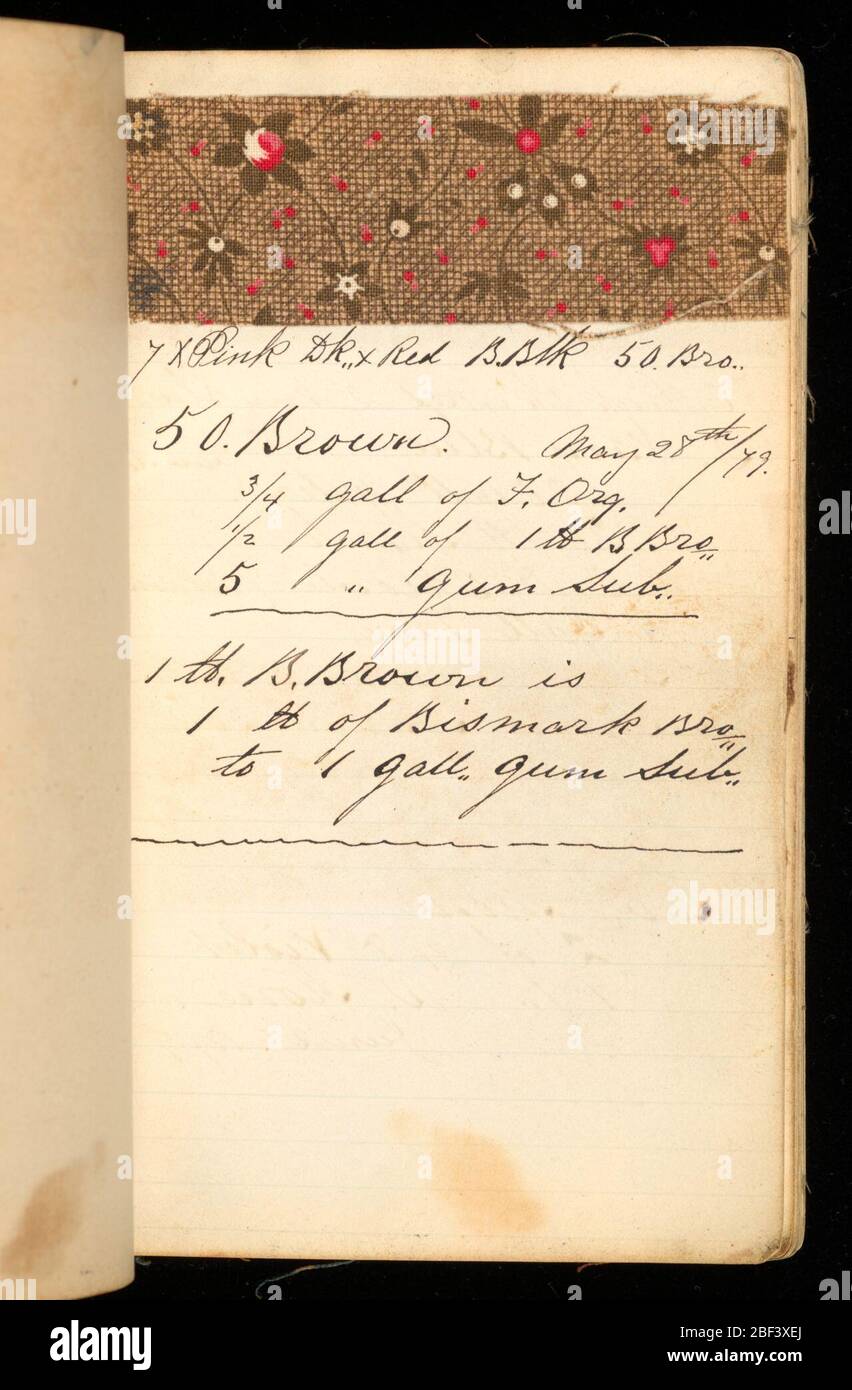 7 X Pink Dk,, x Red B.Blk 50. Bro..
50. Brown. May 28th/79.
3/4 gall of F. Org.
1/2 gall of 1 ℔ B Bro,,
5 " gum Sub..
1 ℔. B. Brown is
1 ℔ of Bismark Bro,,
to 1 gall,, gum Sub,,
a
alamy
Image ID: 2BF3XEJ
www.alamy.com